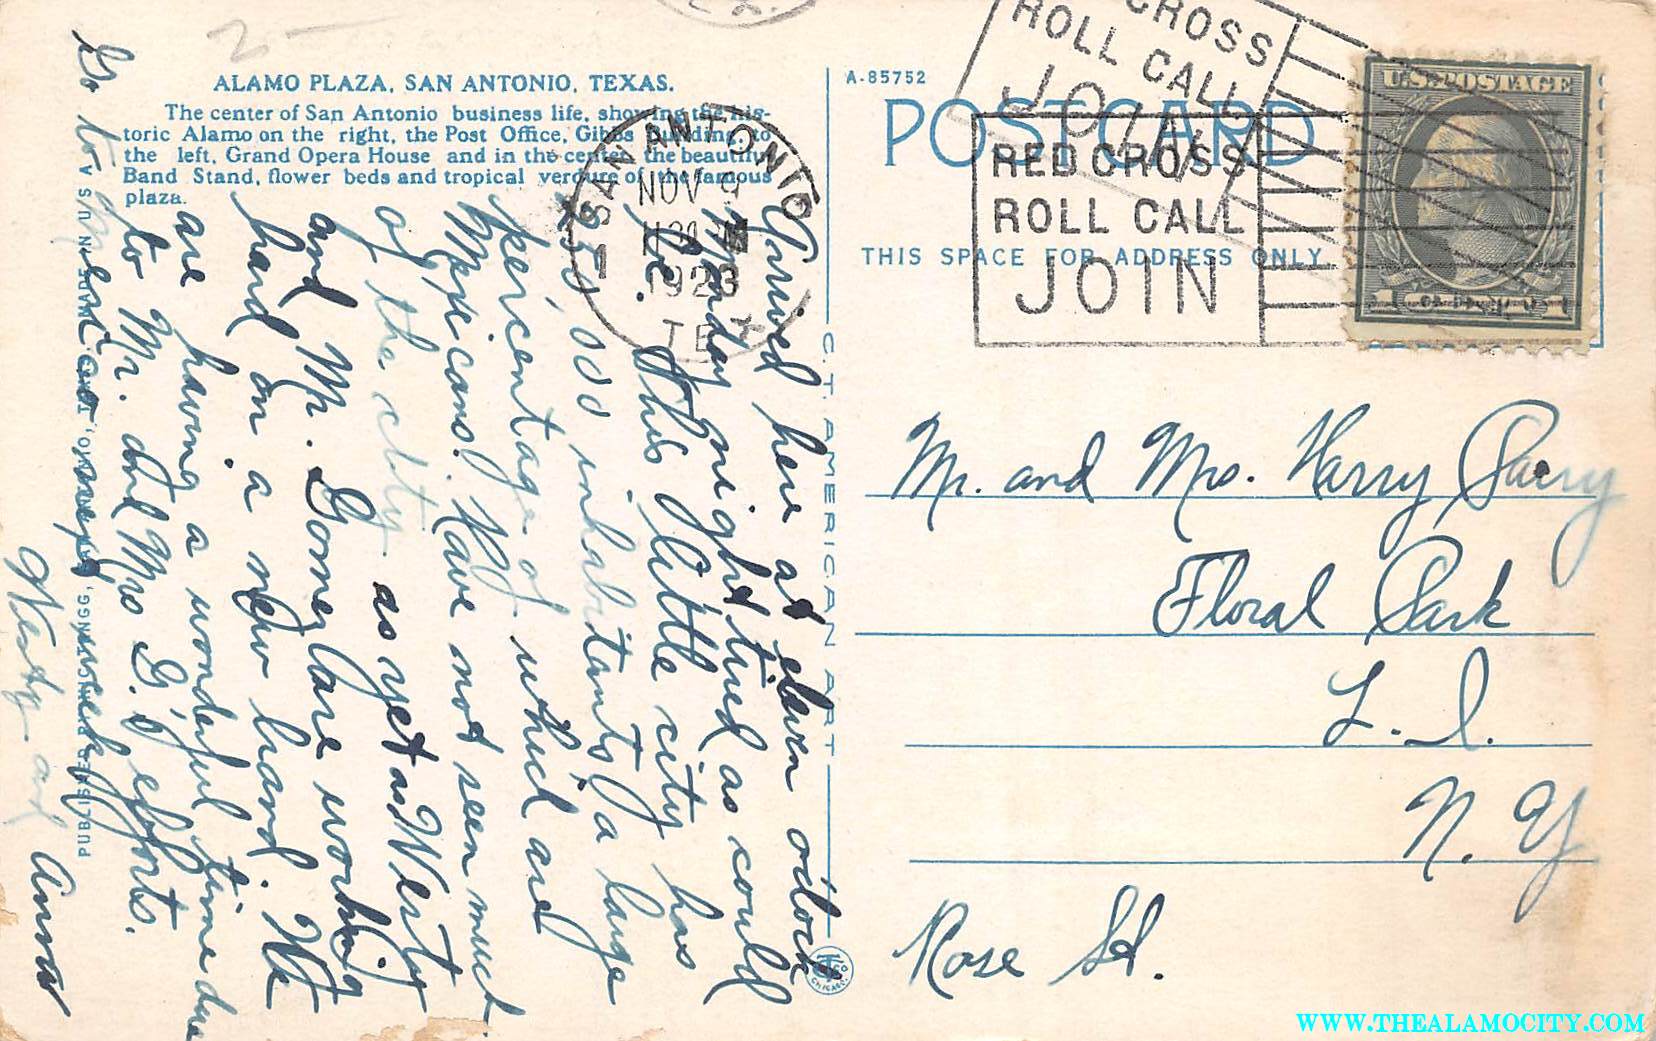 ALAMO PLAZA, SAN ANTONIO, TEXAS.
The center of San Antonio business life, showing the his-
toric Alamo on the right, the Post Office, Gibbs Building, to
the left, Grand Opera House and in the center the beautiful
Band Stand, flower beds and tropical verdure of the famous
plaza.
A-85752
POSTCARD
THIS SPACE FOR ADDRESS ONLY
CROSS
ROLL CALL
JOIN
RED CROSS
ROLL CALL
JOIN
SAN ANTONIO
NOV 9
1923
TEX
U.S. POSTAGE
Arrived here at eleven oclock
Monday night tired as could
be. This little city has
inhabitants, a large
percentage of which are
Mexicans. Have not seen much
of the city as yet as Westy
and Mr. Gomez are working
hard on a new hand. We
are having a wonderful time due
to Mr. and Mrs G.'s efforts.
Go to next week
Westy and Anna
C.T. AMERICAN ART
MADE IN U.S.A.
Mr. and Mrs. Harry
Floral Park
L. I.
N. Y
Rose St.
CHICAGO.
WWW.THEALAMOCITY.COM